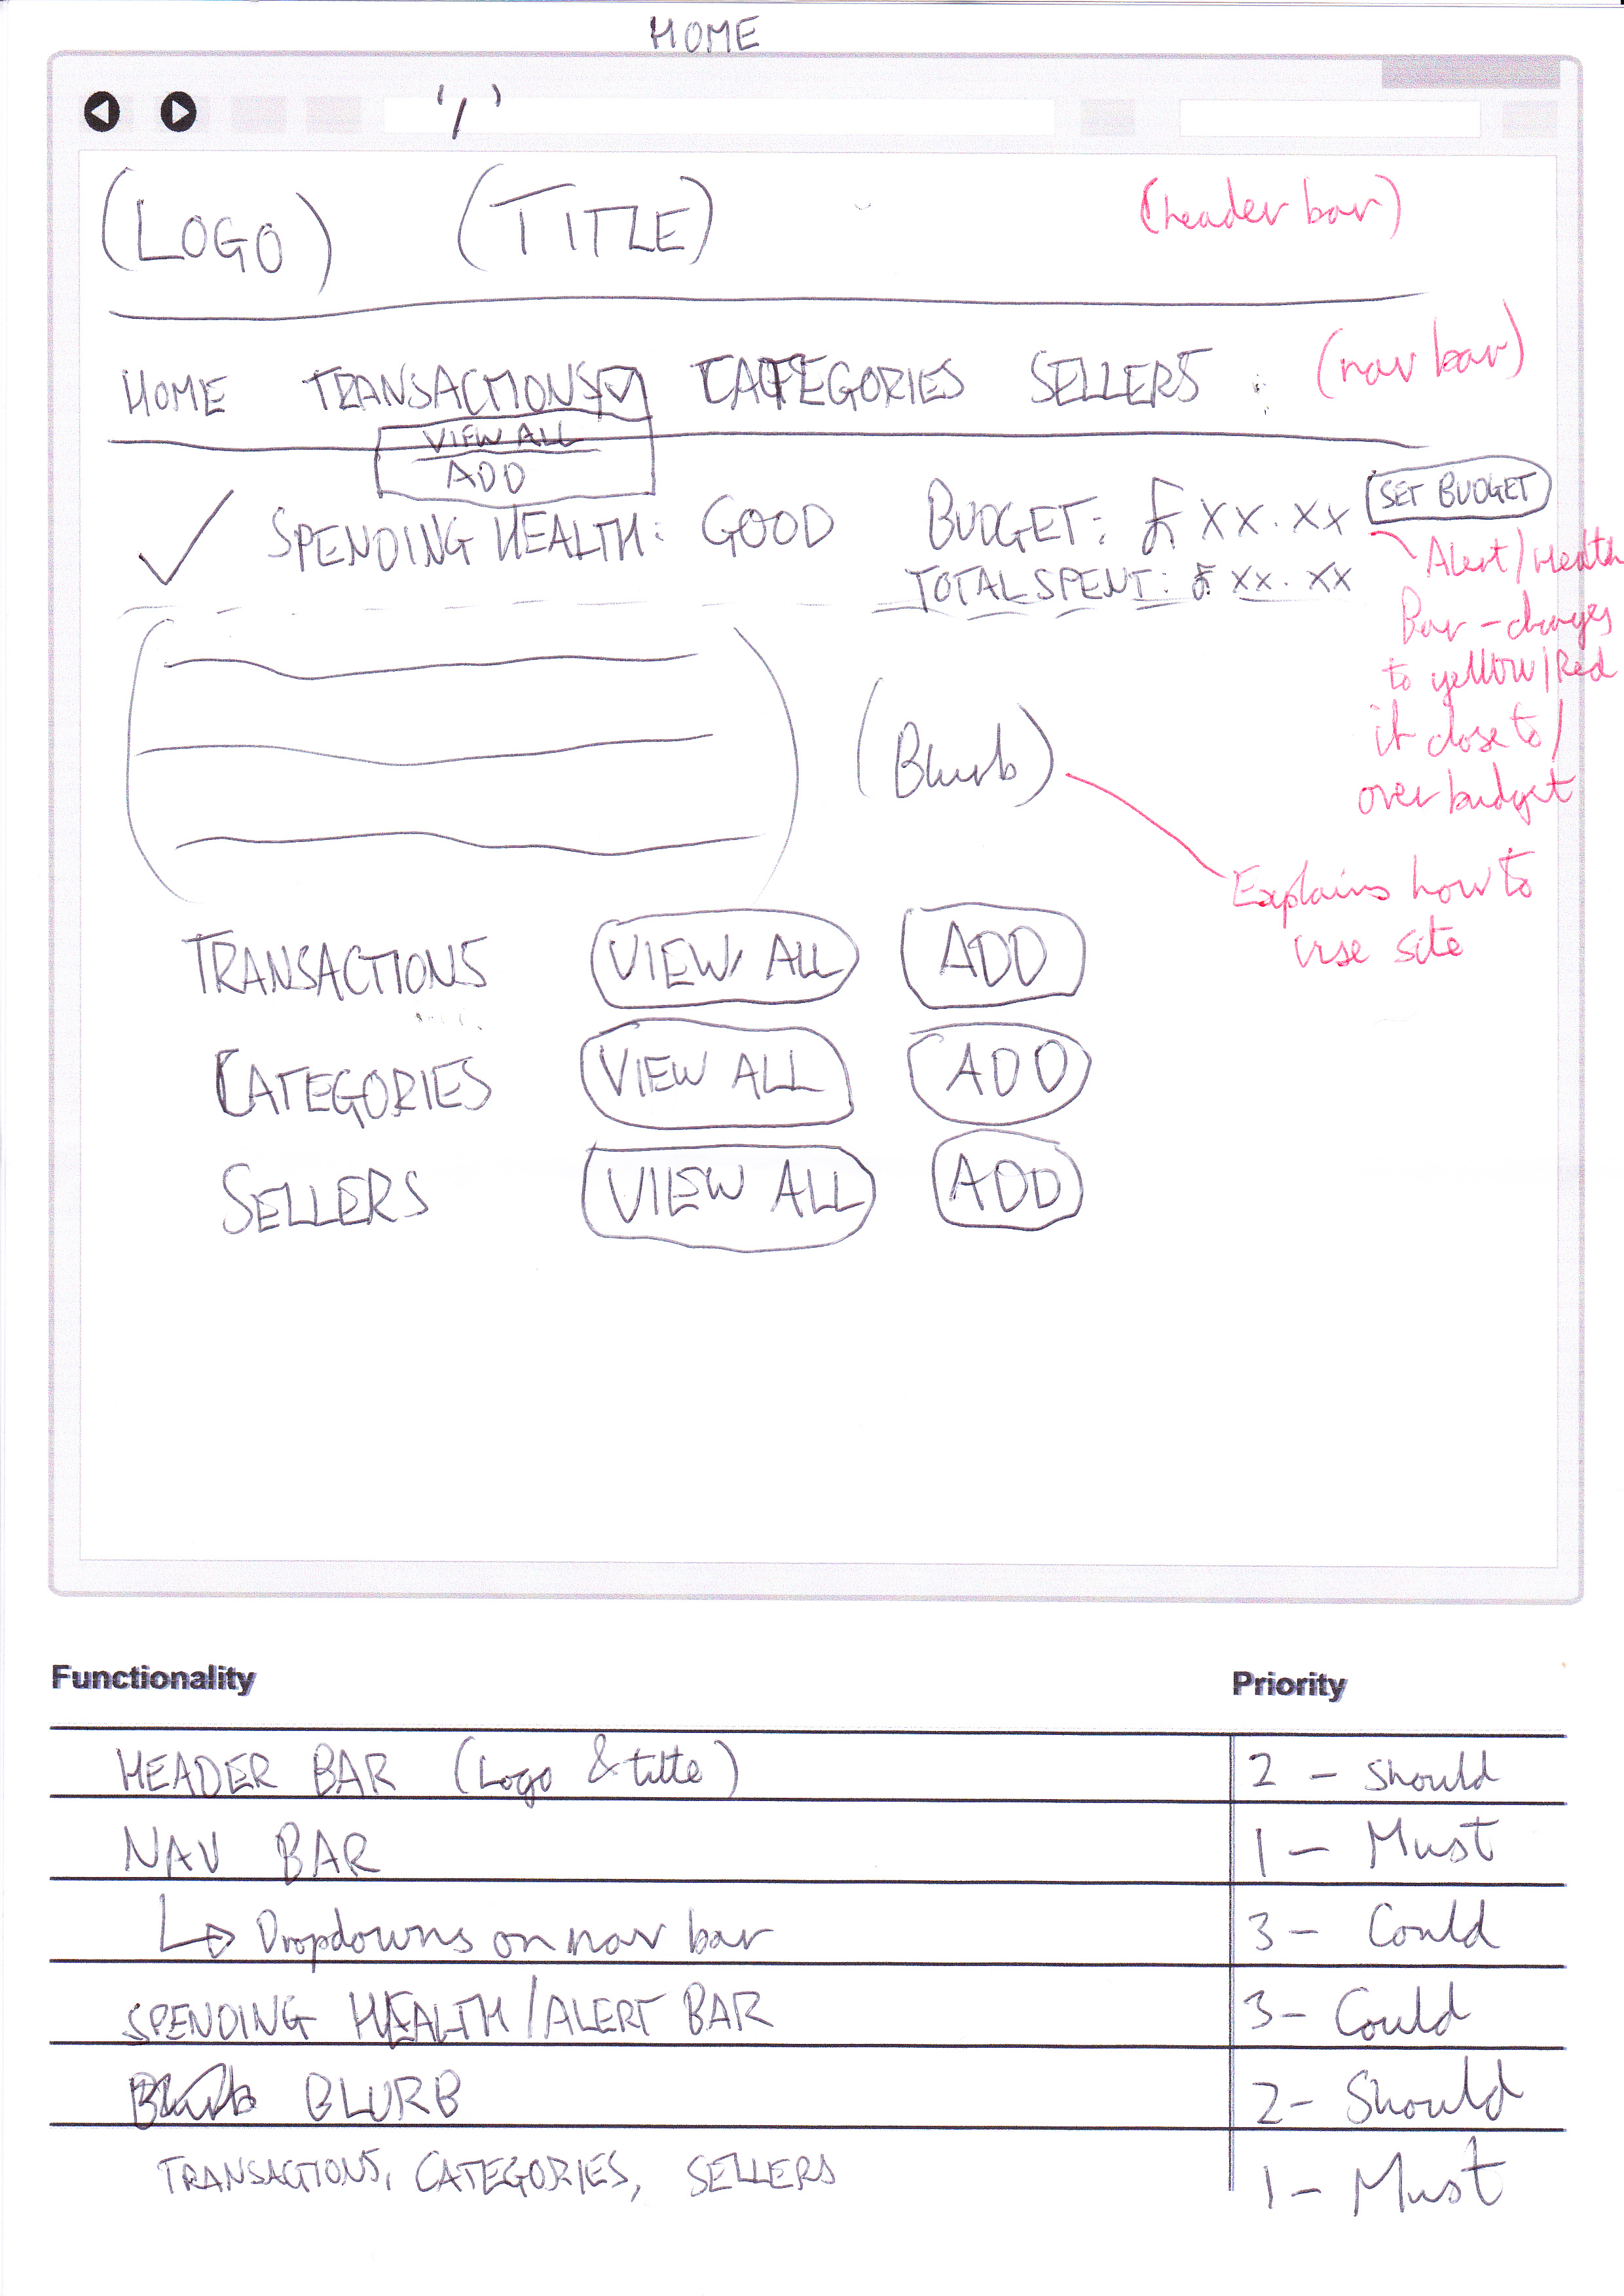 HOME
'/'
(LOGO) (TITLE) (header bar)
HOME TRANSACTIONS CATEGORIES SELLERS (nav bar)
VIEW ALL
ADD
SPENDING HEALTH: GOOD BUDGET: £ XX.XX SET BUDGET
TOTAL SPENT: £ XX.XX
Alert/Health
Bar - changes
to yellow/Red
if close to/
over budget
(Blurb)
Explains how to
use site
TRANSACTIONS VIEW ALL ADD
CATEGORIES VIEW ALL ADD
SELLERS VIEW ALL ADD
Functionality Priority
HEADER BAR (Logo & title) 2 - Should
NAV BAR 1 - Must
Dropdowns on nav bar 3 - Could
SPENDING HEALTH/ALERT BAR 3 - Could
Blurb BLURB 2 - Should
TRANSACTIONS, CATEGORIES, SELLERS 1 - Must